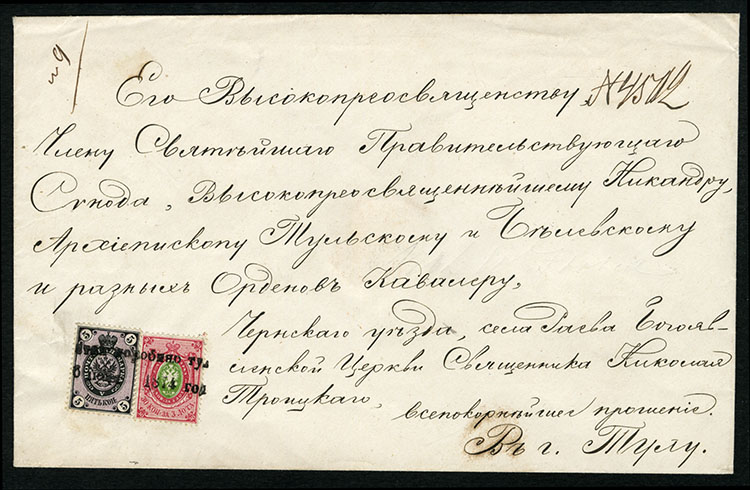 № 9
Его Высокопреосвященству № 4502
Члену Святѣйшаго Правительствующаго
Сѵнода, Высокопреосвященнѣйшему Никандру,
Архіепископу Тульскому и Бѣлевскому
и разныхъ Орденовъ Кавалеру,
Чернскаго уѣзда, села Гаева Богояв-
ленской Церкви Священника Николая
Троицкаго, всепокорнѣйшее прошеніе.
Въ г. Тулу.
5 5
ПЯТЬ КОП
5 5
1874